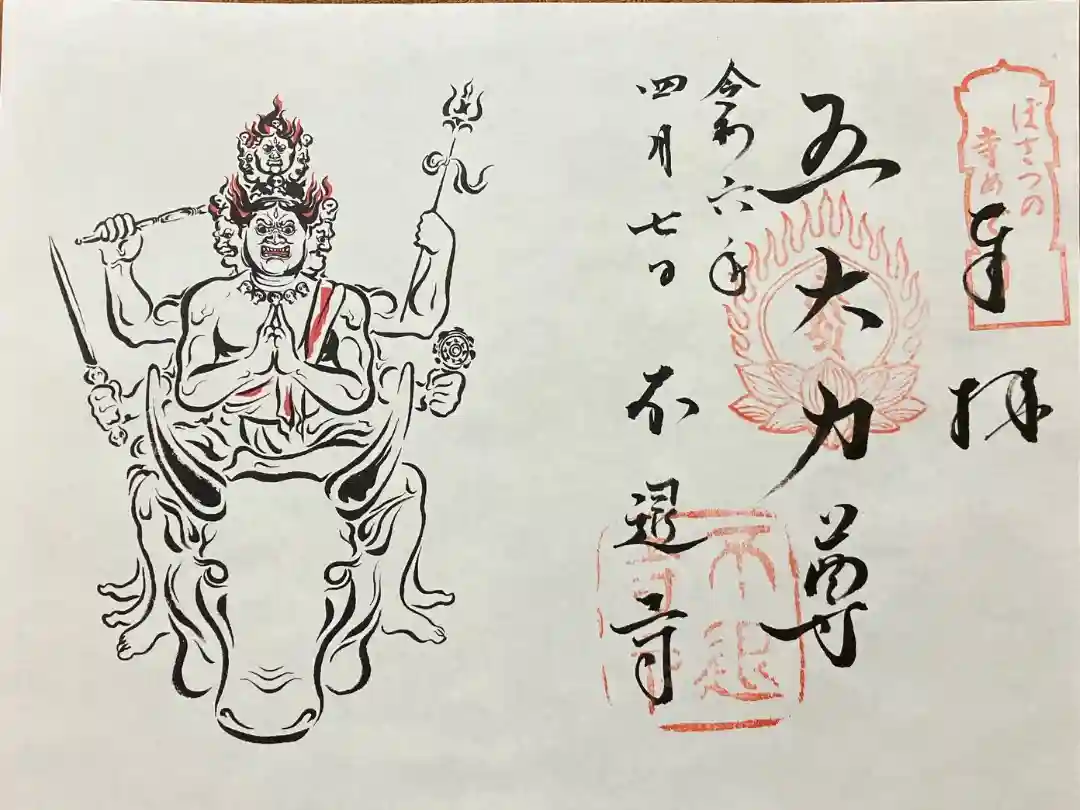 ぼさつの
寺め
奉拝
五大力尊
令和六年
四月七日
不退寺
不退